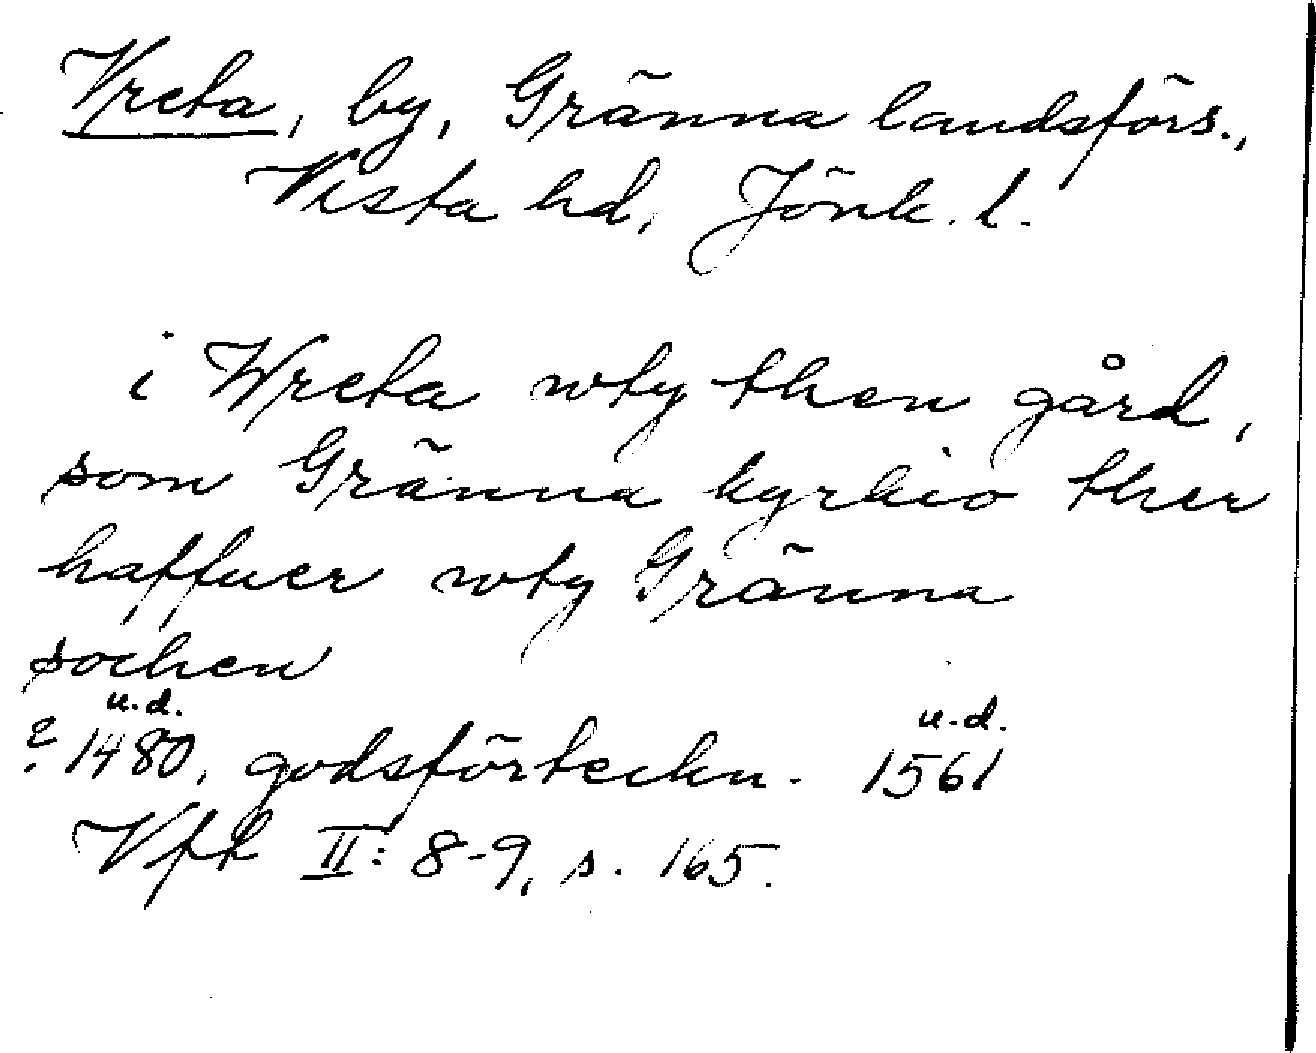 Vreta, by, Gränna landsförs.,
Vista hd, Jönk. l.
i Wreta wty then gård,
som Gränna kyrkio ther
haffuer wty Gränna
sochen
u.d. u.d.
? 1480, godsförteckn. 1561
Vfk II: 8-9, s. 165.